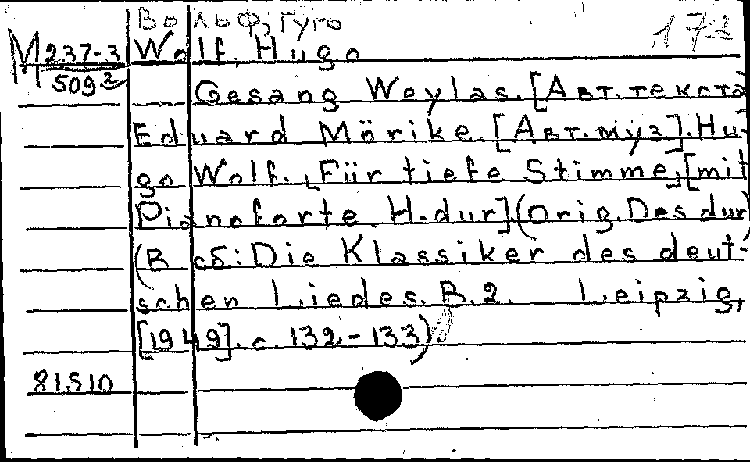 Вольф, Гуго
M 237-3 Wolf, Hugo 173
5092
Gesang Weylas. [Авт. текста
Eduard Mörike. [Авт. муз]. Hu-
go Wolf. Für tiefe Stimme, [mit
Pianoforte H-dur] (Orig. Des dur)
(В сб: Die Klassiker des deut-
schen Liedes. B. 2. Leipzig,
[1949]. с. 132-133)
81510